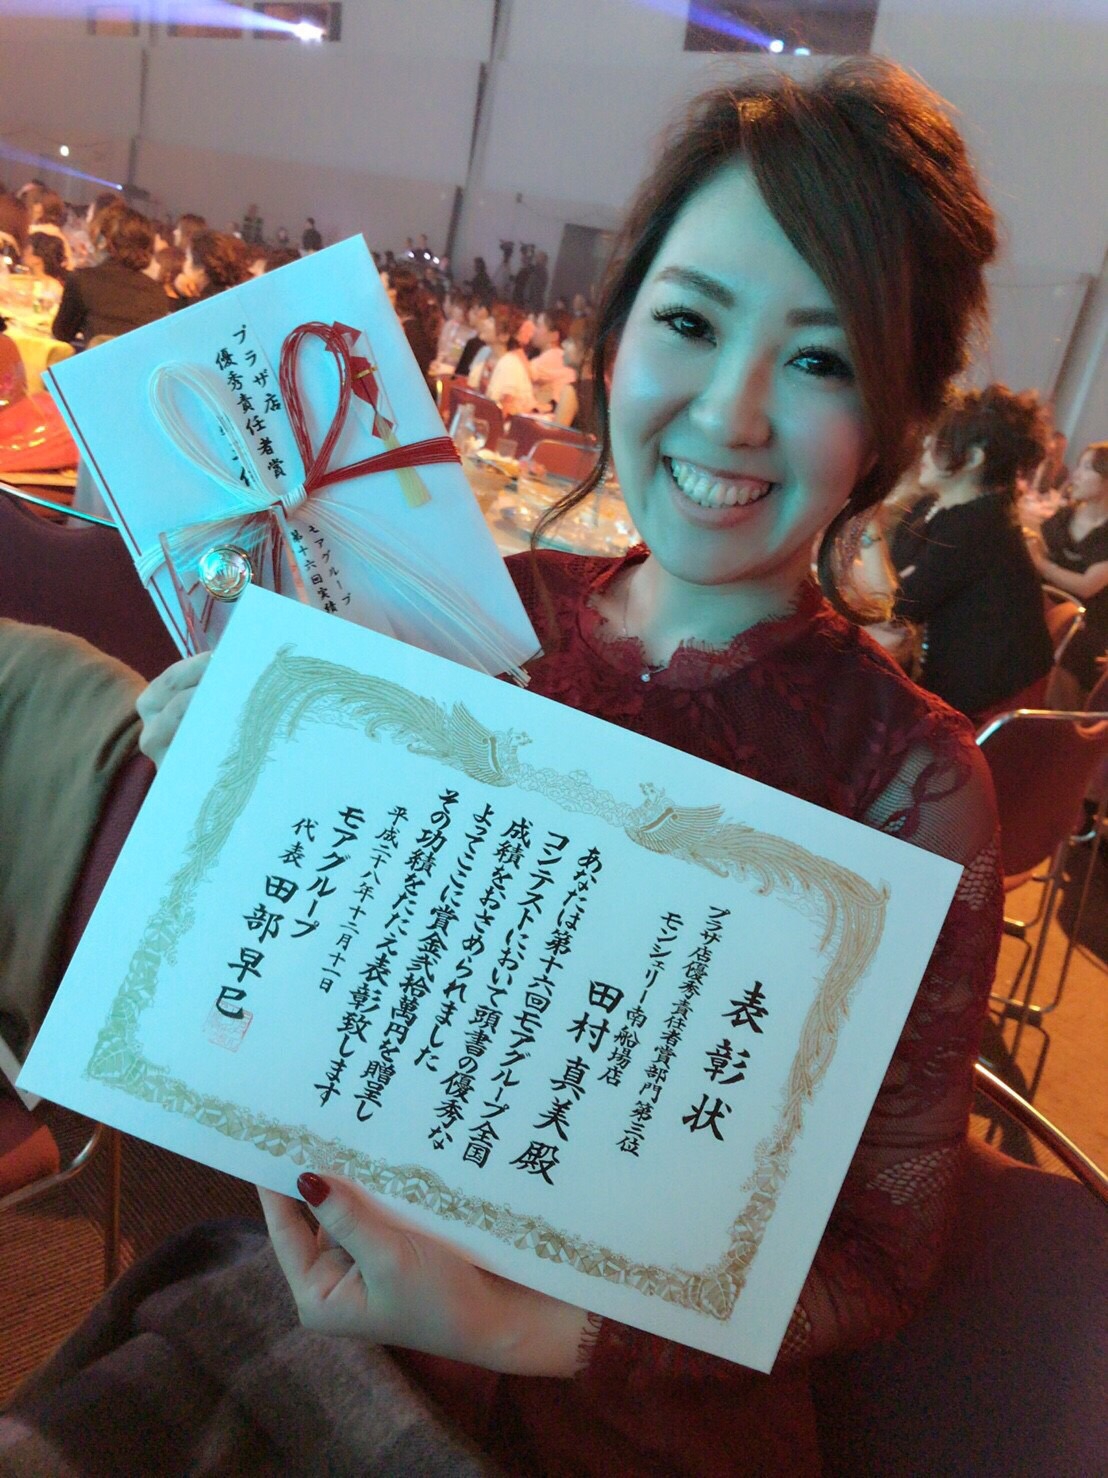 プラザ店
優秀責任者賞
モアグループ
第十六回実績
表彰状
プラザ店優秀責任者賞部門第三位
モンシェリー南船場店
田村真美殿
あなたは第十六回モアグループ全国
コンテストにおいて頭書の優秀な
成績をおさめられました
よってここに賞金弐拾萬円を贈呈し
その功績をたたえ表彰致します
平成二十八年十二月十一日
モアグループ
代表田部早巳